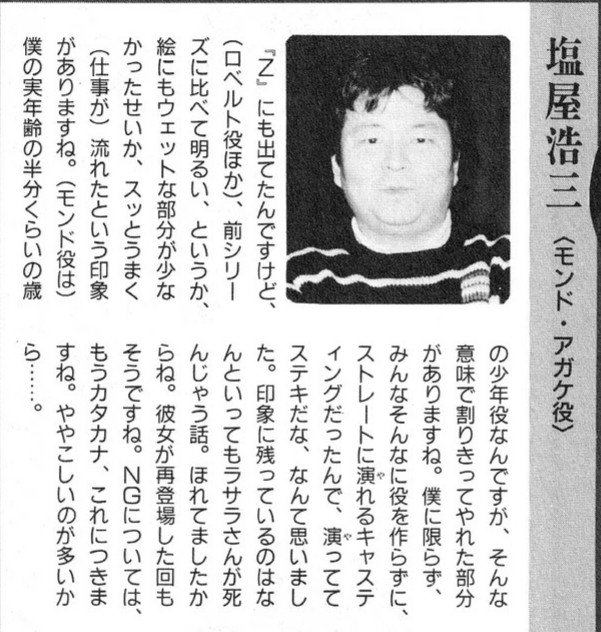 塩屋浩三〈モンド・アガケ役〉
『Z』にも出てたんですけど、
(ロベルト役ほか)、前シリー
ズに比べて明るい、というか、
絵にもウェットな部分が少な
かったせいか、スッとうまく
(仕事が)流れたという印象
がありますね。(モンド役は)
僕の実年齢の半分くらいの歳
の少年役なんですが、そんな
意味で割りきってやれた部分
がありますね。僕に限らず、
みんなそんなに役を作らずに、
ストレートに演やれるキャステ
ィングだったんで、演やってて
ステキだな、なんて思いまし
た。印象に残っているのはな
んといってもラサラさんが死
んじゃう話。ほれてましたか
らね。彼女が再登場した回も
そうですね。NGについては、
もうカタカナ、これにつきま
すね。ややこしいのが多いか
ら……。